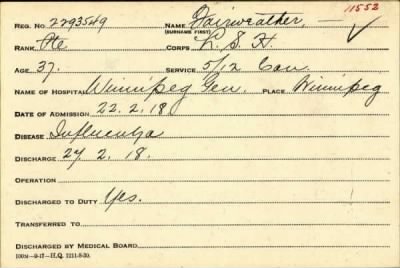 11552
REG. NO. 2293549 NAME Fairweather, —
(SURNAME FIRST)
RANK Pte CORPS L. S. H.
AGE 37. SERVICE 5/12 Can
NAME OF HOSPITAL Winnipeg Gen. PLACE Winnipeg
DATE OF ADMISSION 22. 2. 18.
DISEASE Influenza
DISCHARGE 27. 2. 18.
OPERATION
DISCHARGED TO DUTY Yes.
TRANSFERRED TO
DISCHARGED BY MEDICAL BOARD
100M—9-17—H.Q. 1211-8-30.